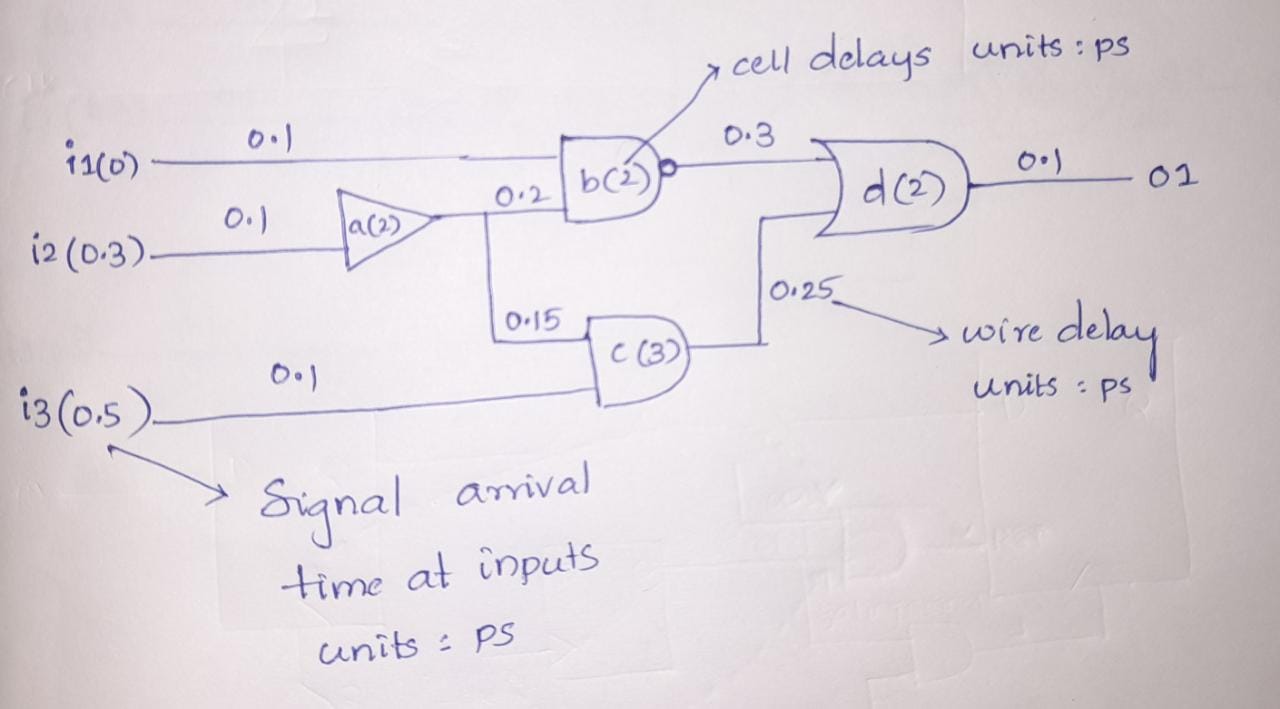 cell delays units : ps
i1(0) 0.1
b(2) 0.3
d(2) 0.1 01
i2 (0.3) 0.1
a(2) 0.2
0.15
c (3)
0.25
wire delay
units : ps
i3 (0.5) 0.1
Signal arrival
time at inputs
units : ps